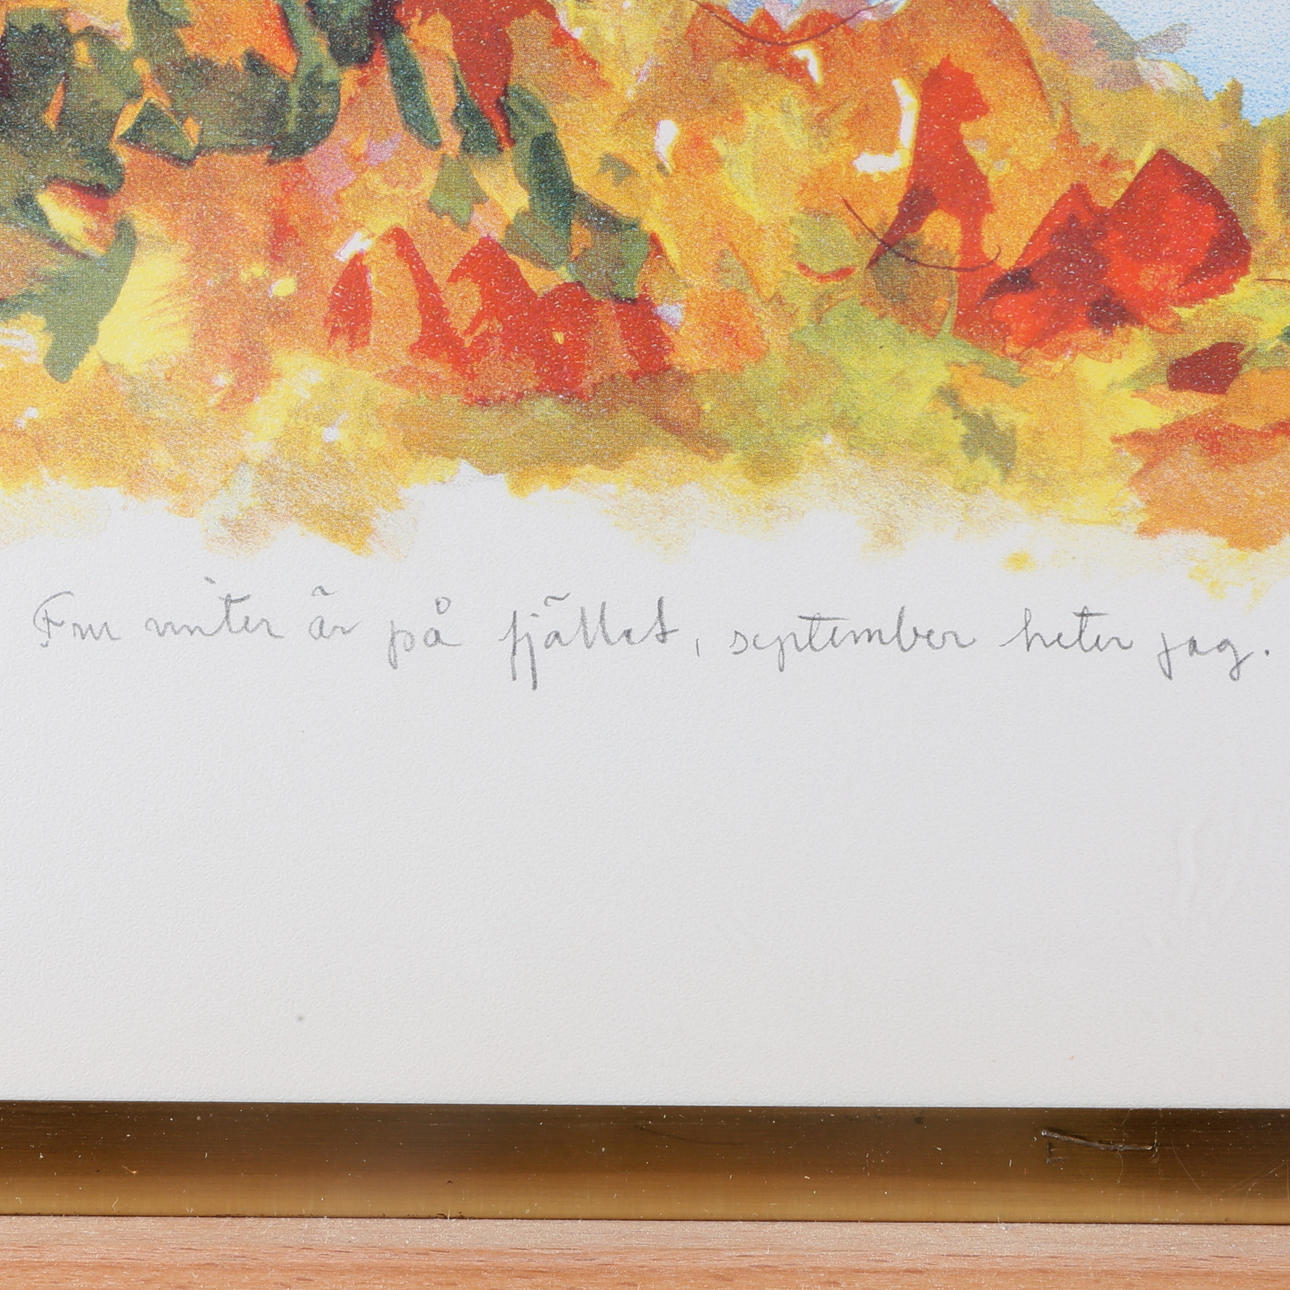 Fru vinter är på fjället, september heter jag.